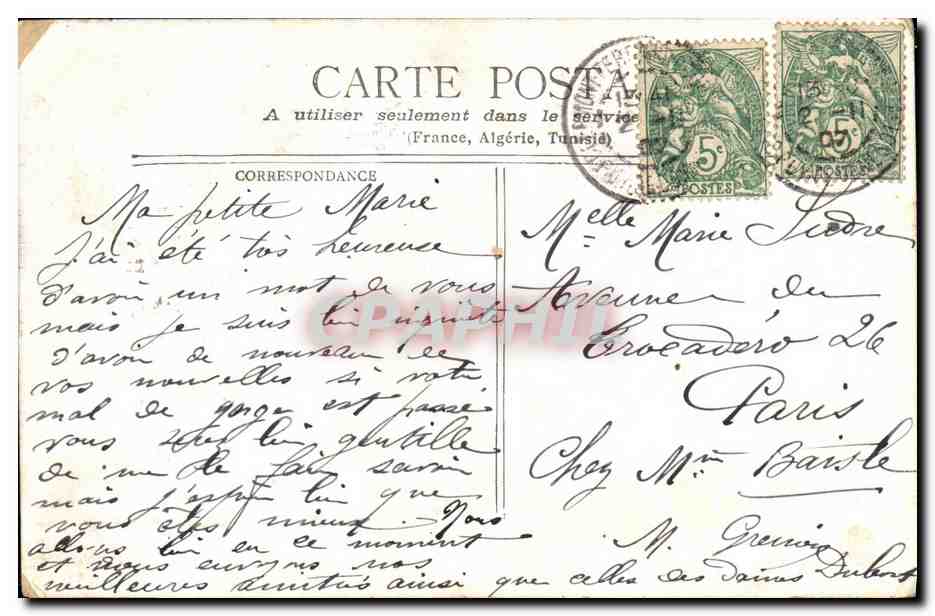 CARTE POSTA
A utiliser seulement dans le service
(France, Algérie, Tunisie)
CORRESPONDANCE
5c
POSTES
5c
POSTES
13
2 -11
07
CPAPHIL
Ma petite Marie
j'ai été très heureuse
d'avoir un mot de vous
mais je suis bien inquiète
d'avoir de nouveau de
vos nouvelles si votre
mal de gorge est passé
vous serez bien gentille
de me le faire savoir
mais j'espère bien que
vous êtes mieux. Nous
allons bien en ce moment
et nous envoyons nos
meilleures amitiés ainsi que celles des dames Dubost
M. Grenier
Melle Marie
Avenue du
Trocadéro 26
Paris
Chez Mme